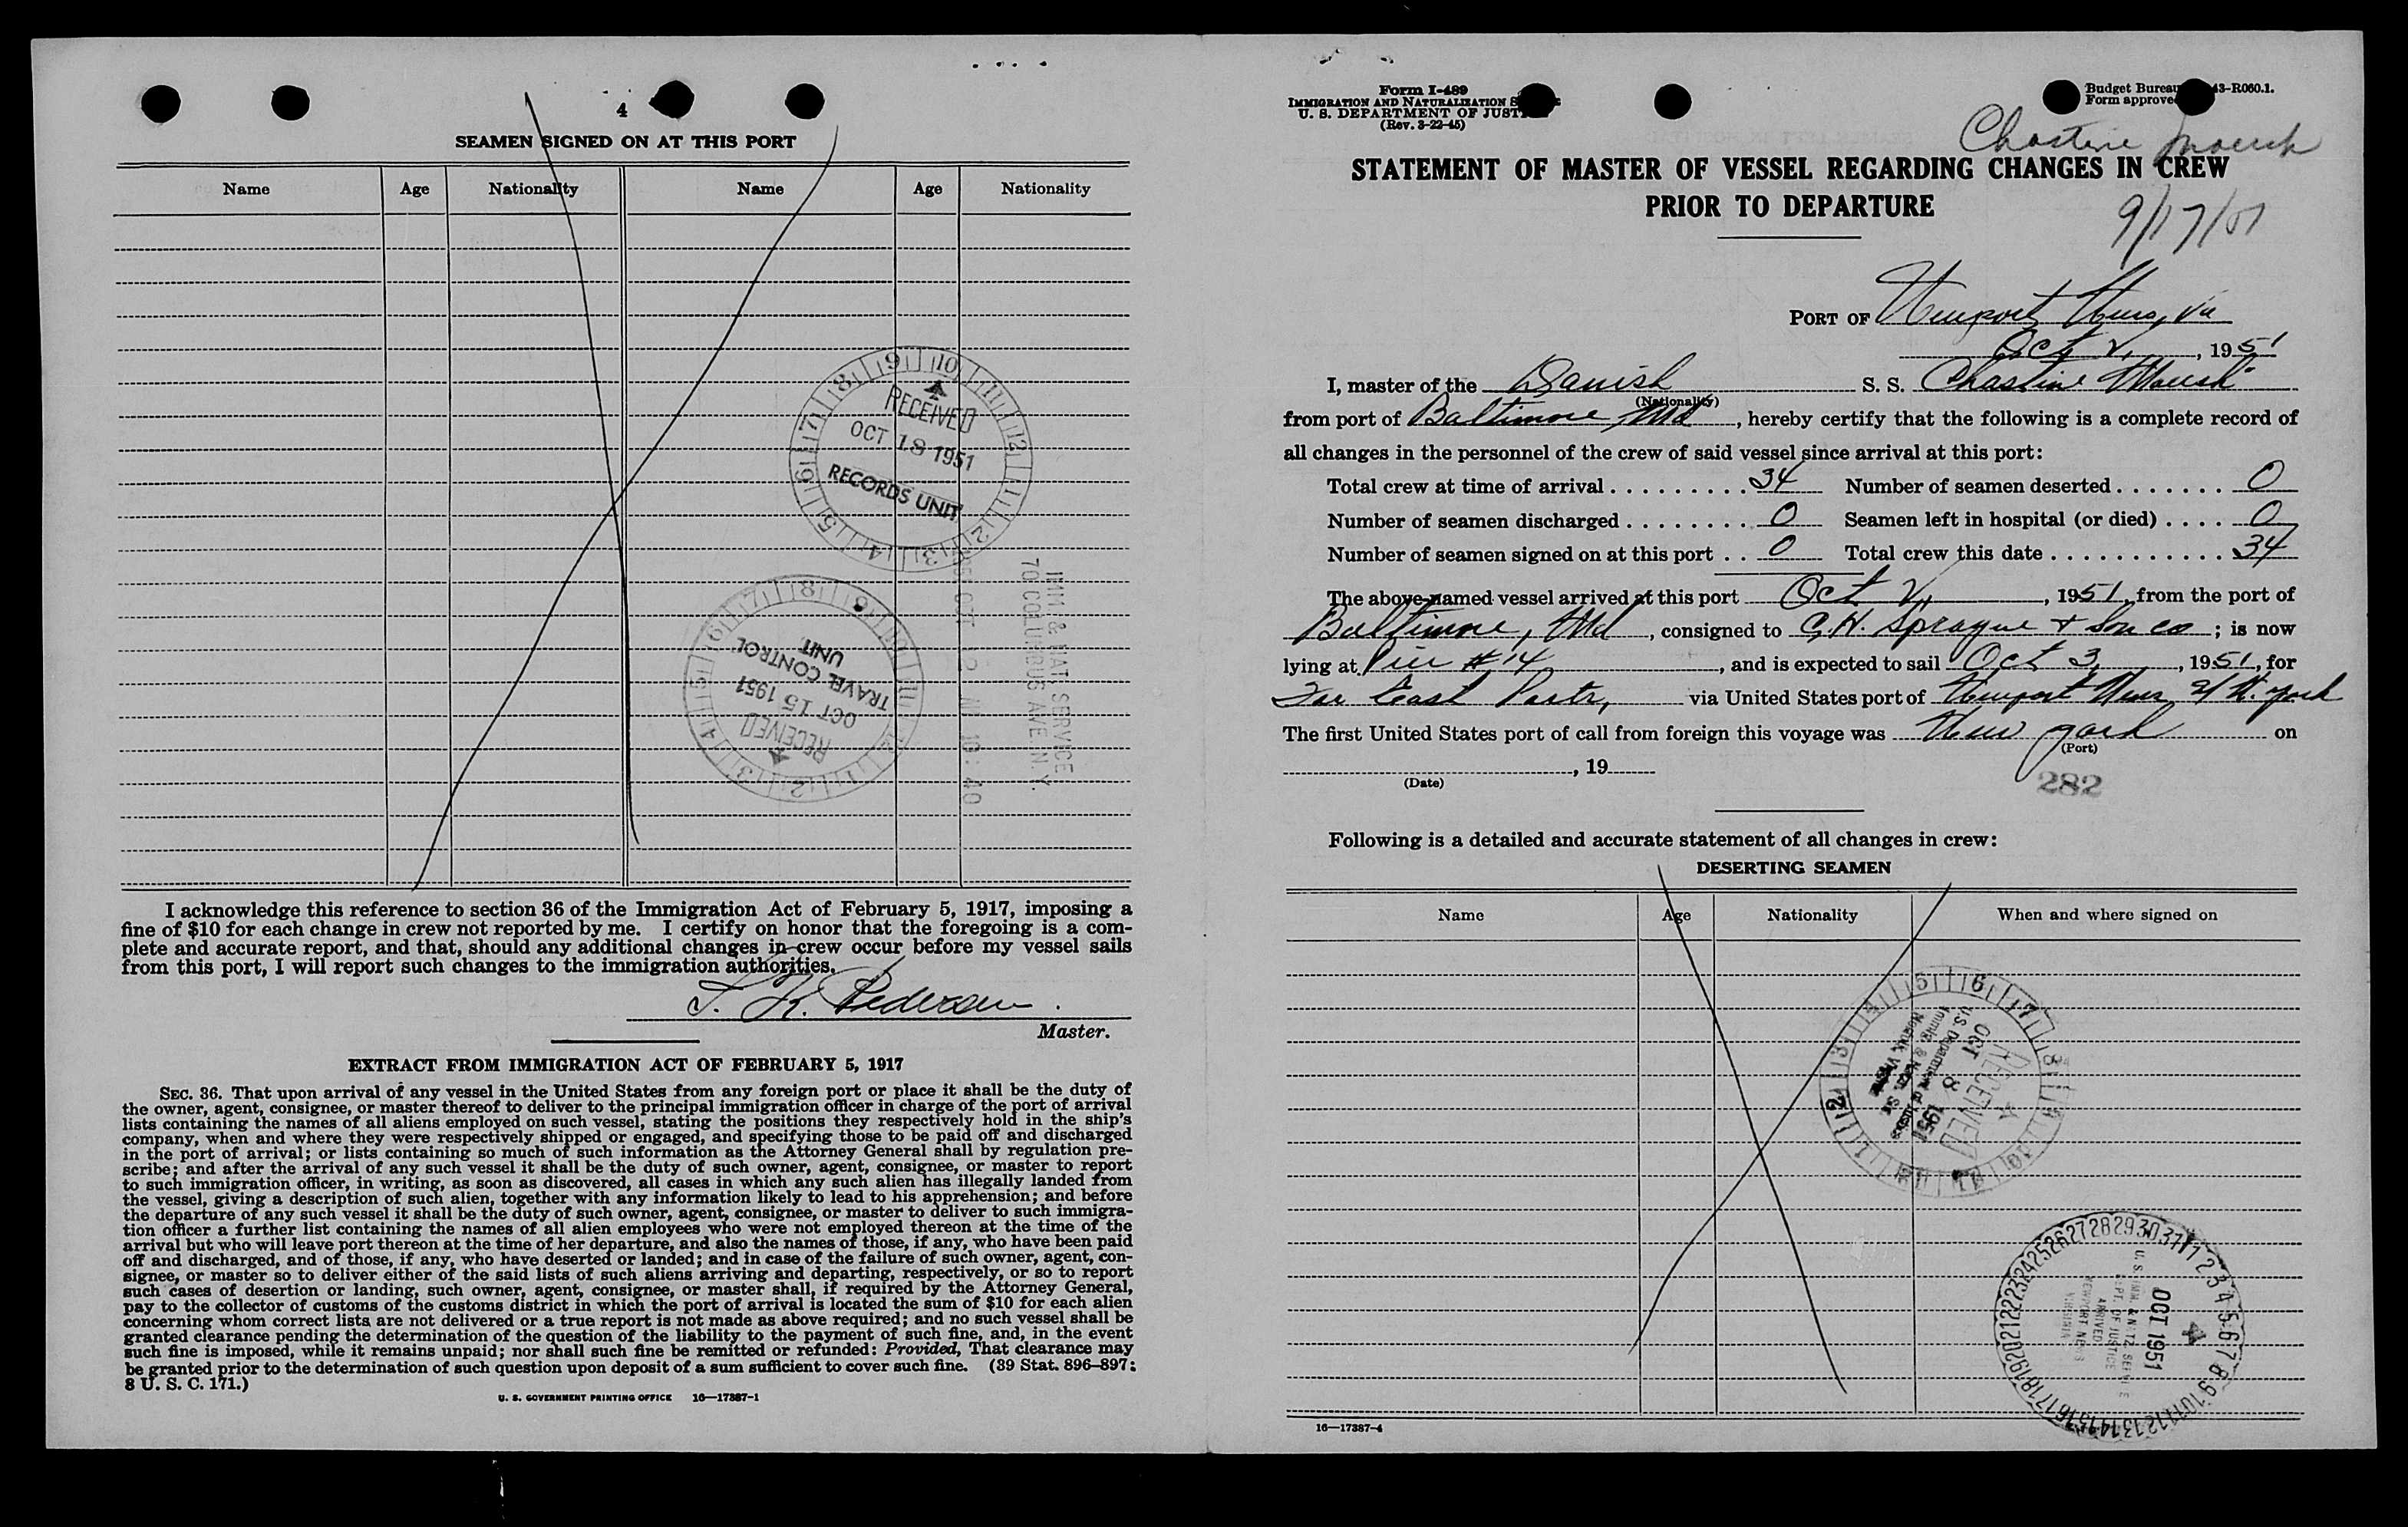 4
SEAMEN SIGNED ON AT THIS PORT
Name Age Nationality Name Age Nationality
RECEIVED
OCT 18 1951
RECORDS UNIT
IMM & NAT. SERVICE
70 COLUMBUS AVE. N.Y.
RECEIVED
OCT 15 1951
TRAVEL CONTROL
UNIT
I acknowledge this reference to section 36 of the Immigration Act of February 5, 1917, imposing a
fine of $10 for each change in crew not reported by me. I certify on honor that the foregoing is a com-
plete and accurate report, and that, should any additional changes in crew occur before my vessel sails
from this port, I will report such changes to the immigration authorities.
K. Pedersen
Master.
EXTRACT FROM IMMIGRATION ACT OF FEBRUARY 5, 1917
SEC. 36. That upon arrival of any vessel in the United States from any foreign port or place it shall be the duty of
the owner, agent, consignee, or master thereof to deliver to the principal immigration officer in charge of the port of arrival
lists containing the names of all aliens employed on such vessel, stating the positions they respectively hold in the ship's
company, when and where they were respectively shipped or engaged, and specifying those to be paid off and discharged
in the port of arrival; or lists containing so much of such information as the Attorney General shall by regulation pre-
scribe; and after the arrival of any such vessel it shall be the duty of such owner, agent, consignee, or master to report
to such immigration officer, in writing, as soon as discovered, all cases in which any such alien has illegally landed from
the vessel, giving a description of such alien, together with any information likely to lead to his apprehension; and before
the departure of any such vessel it shall be the duty of such owner, agent, consignee, or master to deliver to such immigra-
tion officer a further list containing the names of all alien employees who were not employed thereon at the time of the
arrival but who will leave port thereon at the time of her departure, and also the names of those, if any, who have been paid
off and discharged, and of those, if any, who have deserted or landed; and in case of the failure of such owner, agent, con-
signee, or master so to deliver either of the said lists of such aliens arriving and departing, respectively, or so to report
such cases of desertion or landing, such owner, agent, consignee, or master shall, if required by the Attorney General,
pay to the collector of customs of the customs district in which the port of arrival is located the sum of $10 for each alien
concerning whom correct lists are not delivered or a true report is not made as above required; and no such vessel shall be
granted clearance pending the determination of the question of the liability to the payment of such fine, and, in the event
such fine is imposed, while it remains unpaid; nor shall such fine be remitted or refunded: Provided, That clearance may
be granted prior to the determination of such question upon deposit of a sum sufficient to cover such fine. (39 Stat. 896–897;
8 U. S. C. 171.)
U. S. GOVERNMENT PRINTING OFFICE 16—17387-1
Form I-489
IMMIGRATION AND NATURALIZATION
U. S. DEPARTMENT OF JUST
(Rev. 3-22-45)
Budget Bureau 43-R060.1.
Form approve
Chastine Maersk
STATEMENT OF MASTER OF VESSEL REGARDING CHANGES IN CREW
PRIOR TO DEPARTURE
9/17/51
PORT OF Newport News, Va
Oct 2, 1951
I, master of the Danish S. S. Chastine Maersk
(Nationality)
from port of Baltimore, Md, hereby certify that the following is a complete record of
all changes in the personnel of the crew of said vessel since arrival at this port:
Total crew at time of arrival 34 Number of seamen deserted 0
Number of seamen discharged 0 Seamen left in hospital (or died) 0
Number of seamen signed on at this port 0 Total crew this date 34
The above-named vessel arrived at this port Oct 2, 1951, from the port of
Baltimore, Md, consigned to C. H. Sprague & Son Co; is now
lying at Pier #14, and is expected to sail Oct 3, 1951, for
Far East Ports, via United States port of Newport News N. York
The first United States port of call from foreign this voyage was New York on
(Port)
, 19
(Date)
282
Following is a detailed and accurate statement of all changes in crew:
DESERTING SEAMEN
Name Age Nationality When and where signed on
RECEIVED
OCT 8 1951
U.S. Department of Justice
OCT 1951
ARRIVED
NEWPORT NEWS
VIRGINIA
16—17387-4